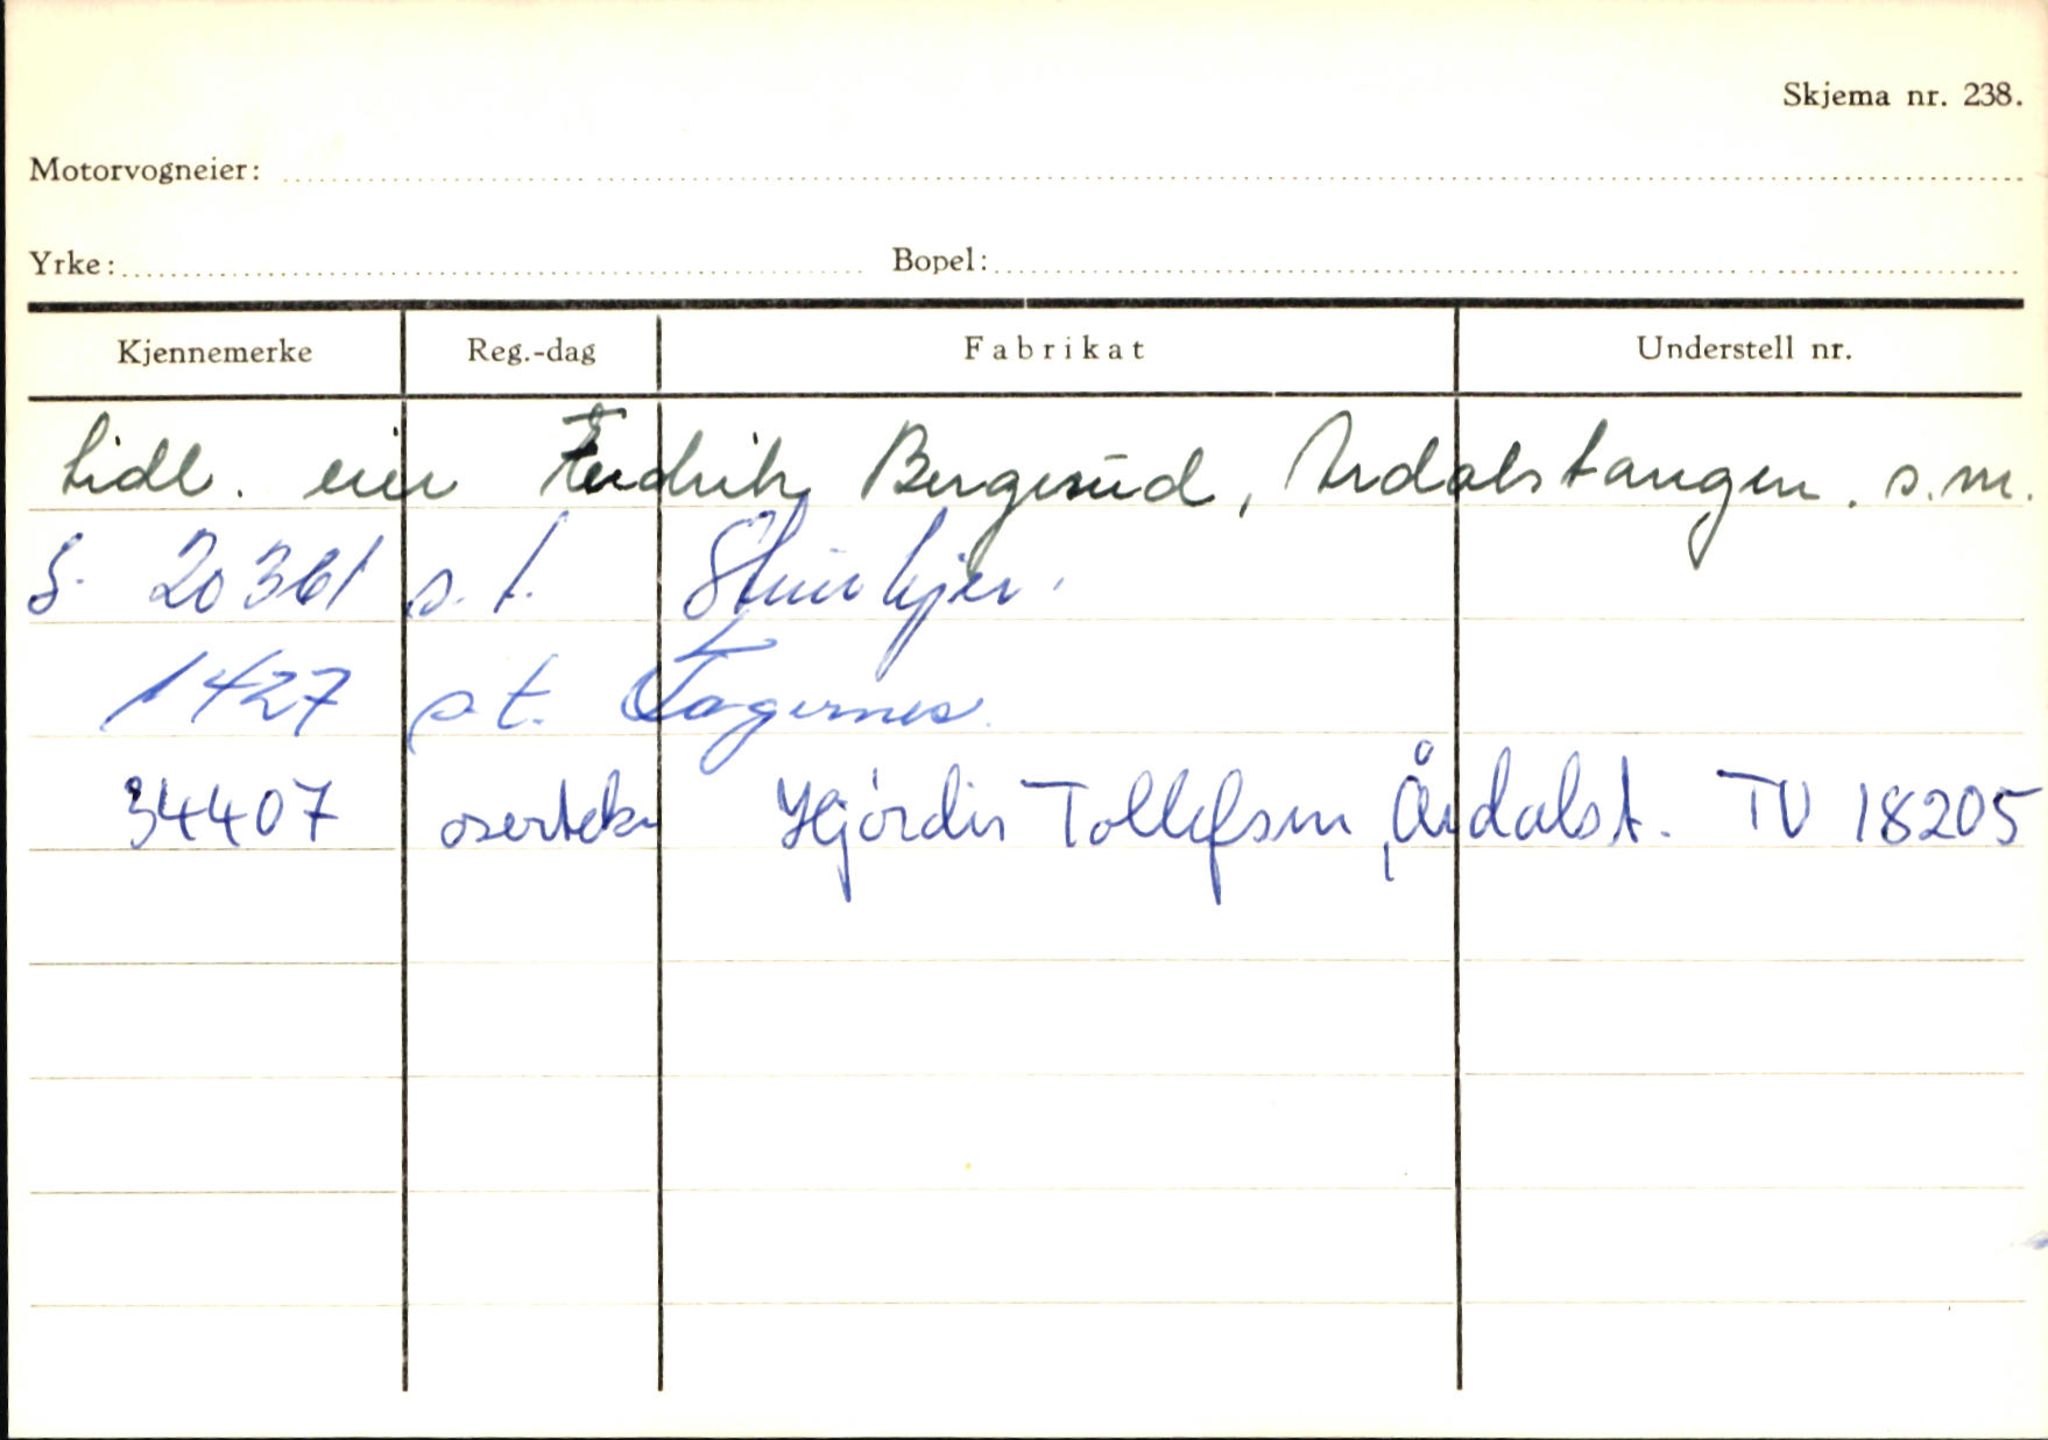 Skjema nr. 238.
Motorvogneier:
Yrke: Bopel:
Kjennemerke Reg.-dag Fabrikat Understell nr.
tidl. eier Fredrik Bergerud, Årdalstangen. s.m.
S. 20361 s.t. Steinkjer.
1427 s.t. Fagernes.
34407 Hjørdis Tollefsen, Årdalst. TV 18205